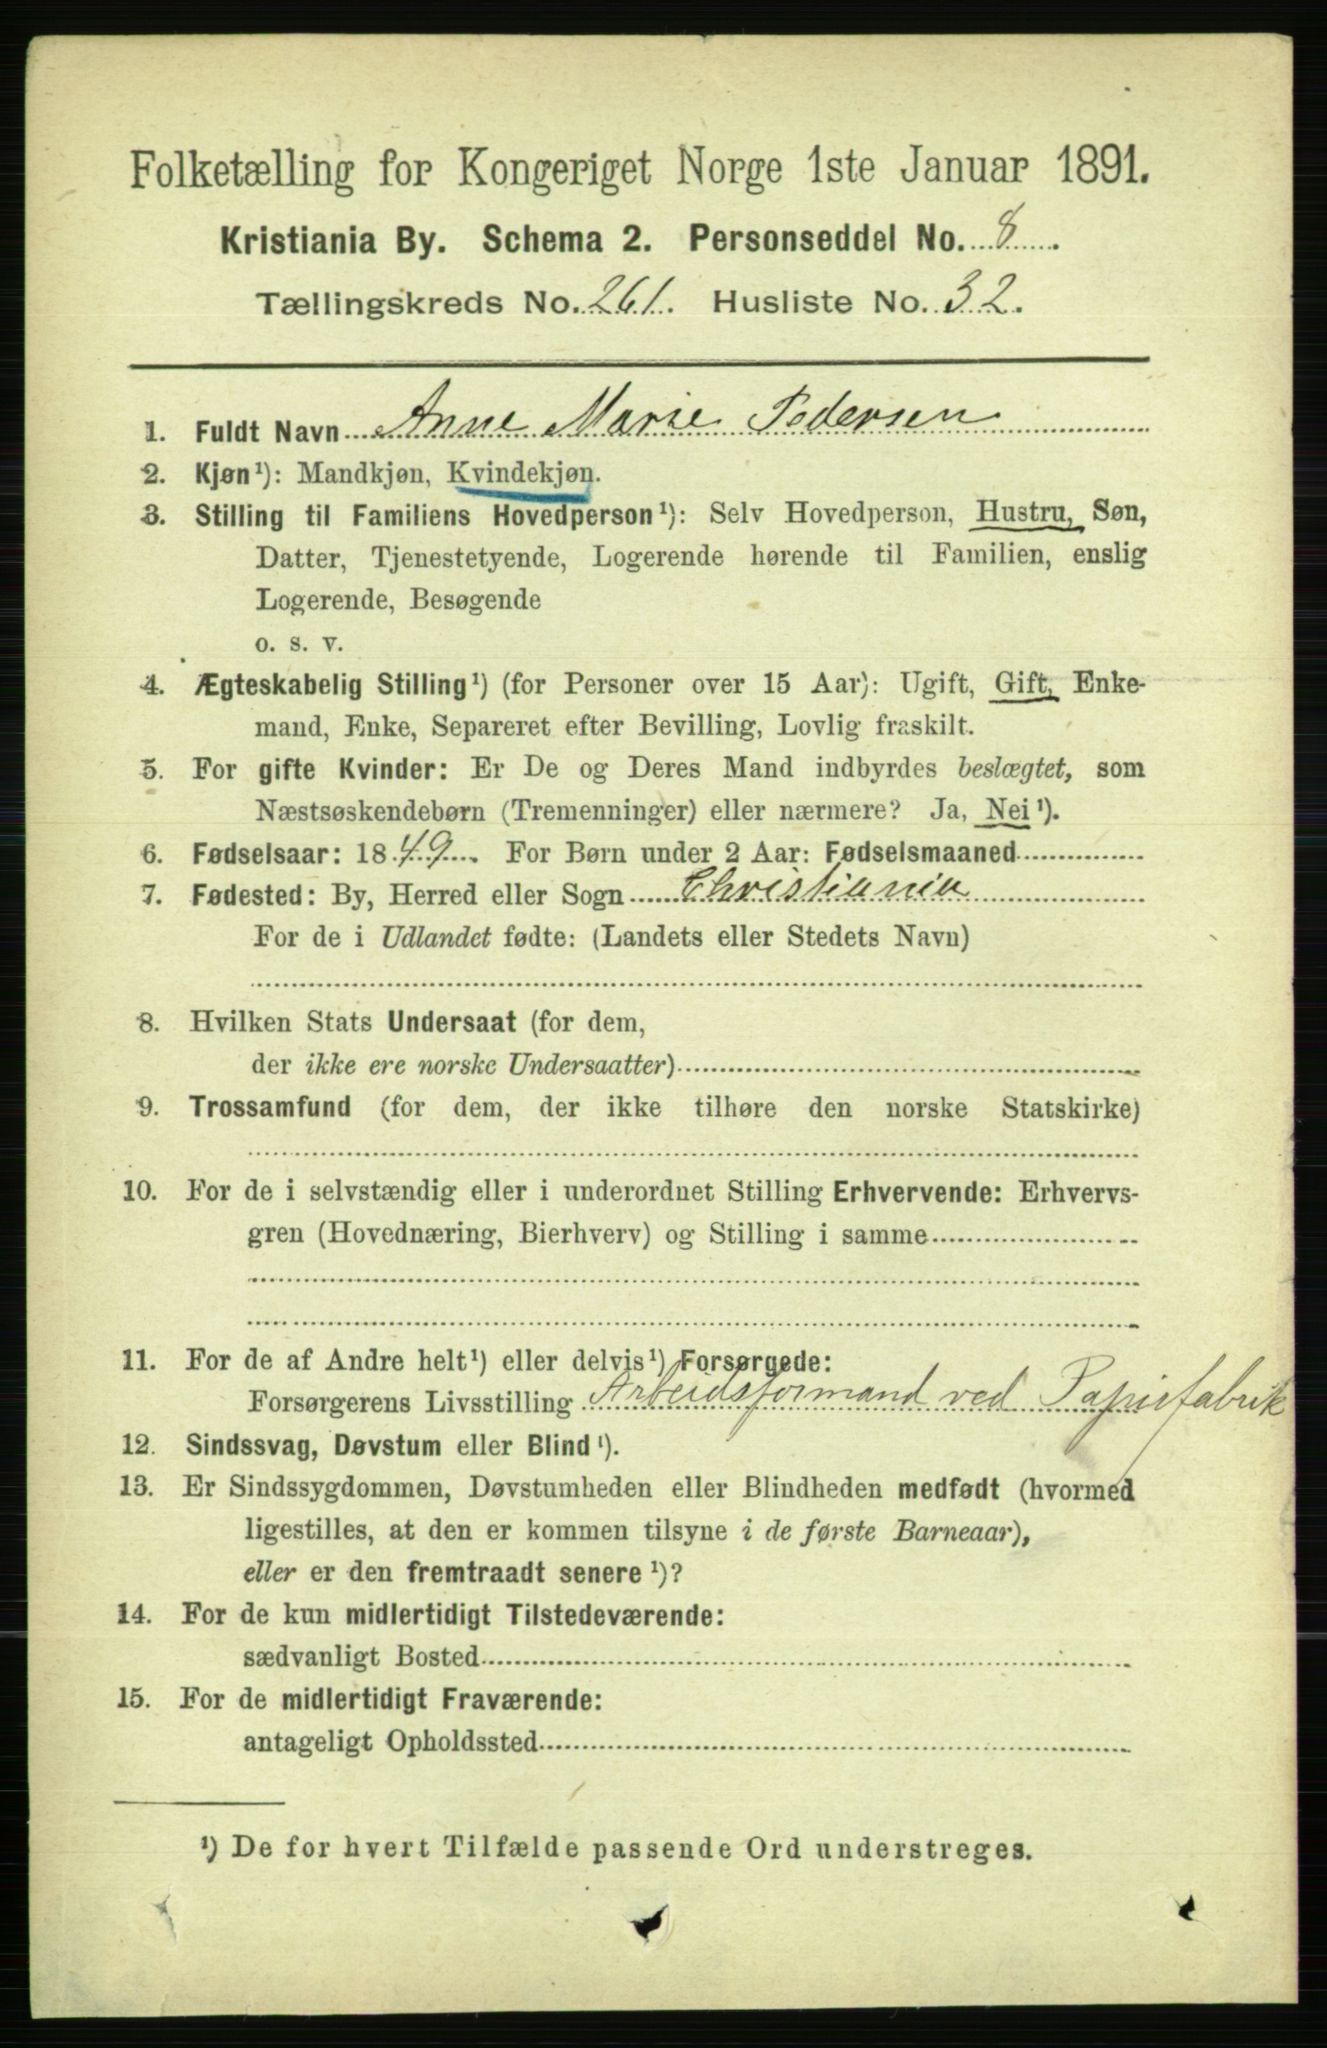 Folketælling for Kongeriget Norge 1ste Januar 1891.
Kristiania By. Schema 2. Personseddel No. 8.
Tællingskreds No. 261. Husliste No. 32.
1. Fuldt Navn Anne Marie Pedersen
2. Kjøn¹): Mandkjøn, Kvindekjøn.
3. Stilling til Familiens Hovedperson¹): Selv Hovedperson, Hustru, Søn,
Datter, Tjenestetyende, Logerende hørende til Familien, enslig
Logerende, Besøgende
o. s. v.
4. Ægteskabelig Stilling¹) (for Personer over 15 Aar): Ugift, Gift, Enke-
mand, Enke, Separeret efter Bevilling, Lovlig fraskilt.
5. For gifte Kvinder: Er De og Deres Mand indbyrdes beslægtet, som
Næstsøskendebørn (Tremenninger) eller nærmere? Ja, Nei¹).
6. Fødselsaar: 1849. For Børn under 2 Aar: Fødselsmaaned
7. Fødested: By, Herred eller Sogn Christiania
For de i Udlandet fødte: (Landets eller Stedets Navn)
8. Hvilken Stats Undersaat (for dem,
der ikke ere norske Undersaatter)
9. Trossamfund (for dem, der ikke tilhøre den norske Statskirke)
10. For de i selvstændig eller i underordnet Stilling Erhvervende: Erhvervs-
gren (Hovednæring, Bierhverv) og Stilling i samme
11. For de af Andre helt¹) eller delvis¹) Forsørgede:
Forsørgerens Livsstilling Arbeidsformand ved Papirfabrik
12. Sindssvag, Døvstum eller Blind¹).
13. Er Sindssygdommen, Døvstumheden eller Blindheden medfødt (hvormed
ligestilles, at den er kommen tilsyne i de første Barneaar),
eller er den fremtraadt senere¹)?
14. For de kun midlertidigt Tilstedeværende:
sædvanligt Bosted
15. For de midlertidigt Fraværende:
antageligt Opholdssted
¹) De for hvert Tilfælde passende Ord understreges.